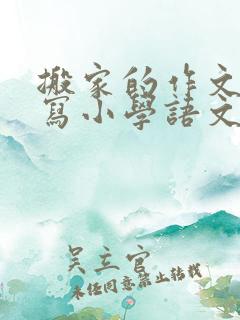 搬家的作文
寫小學語文
吴立官
未经同意禁止转载